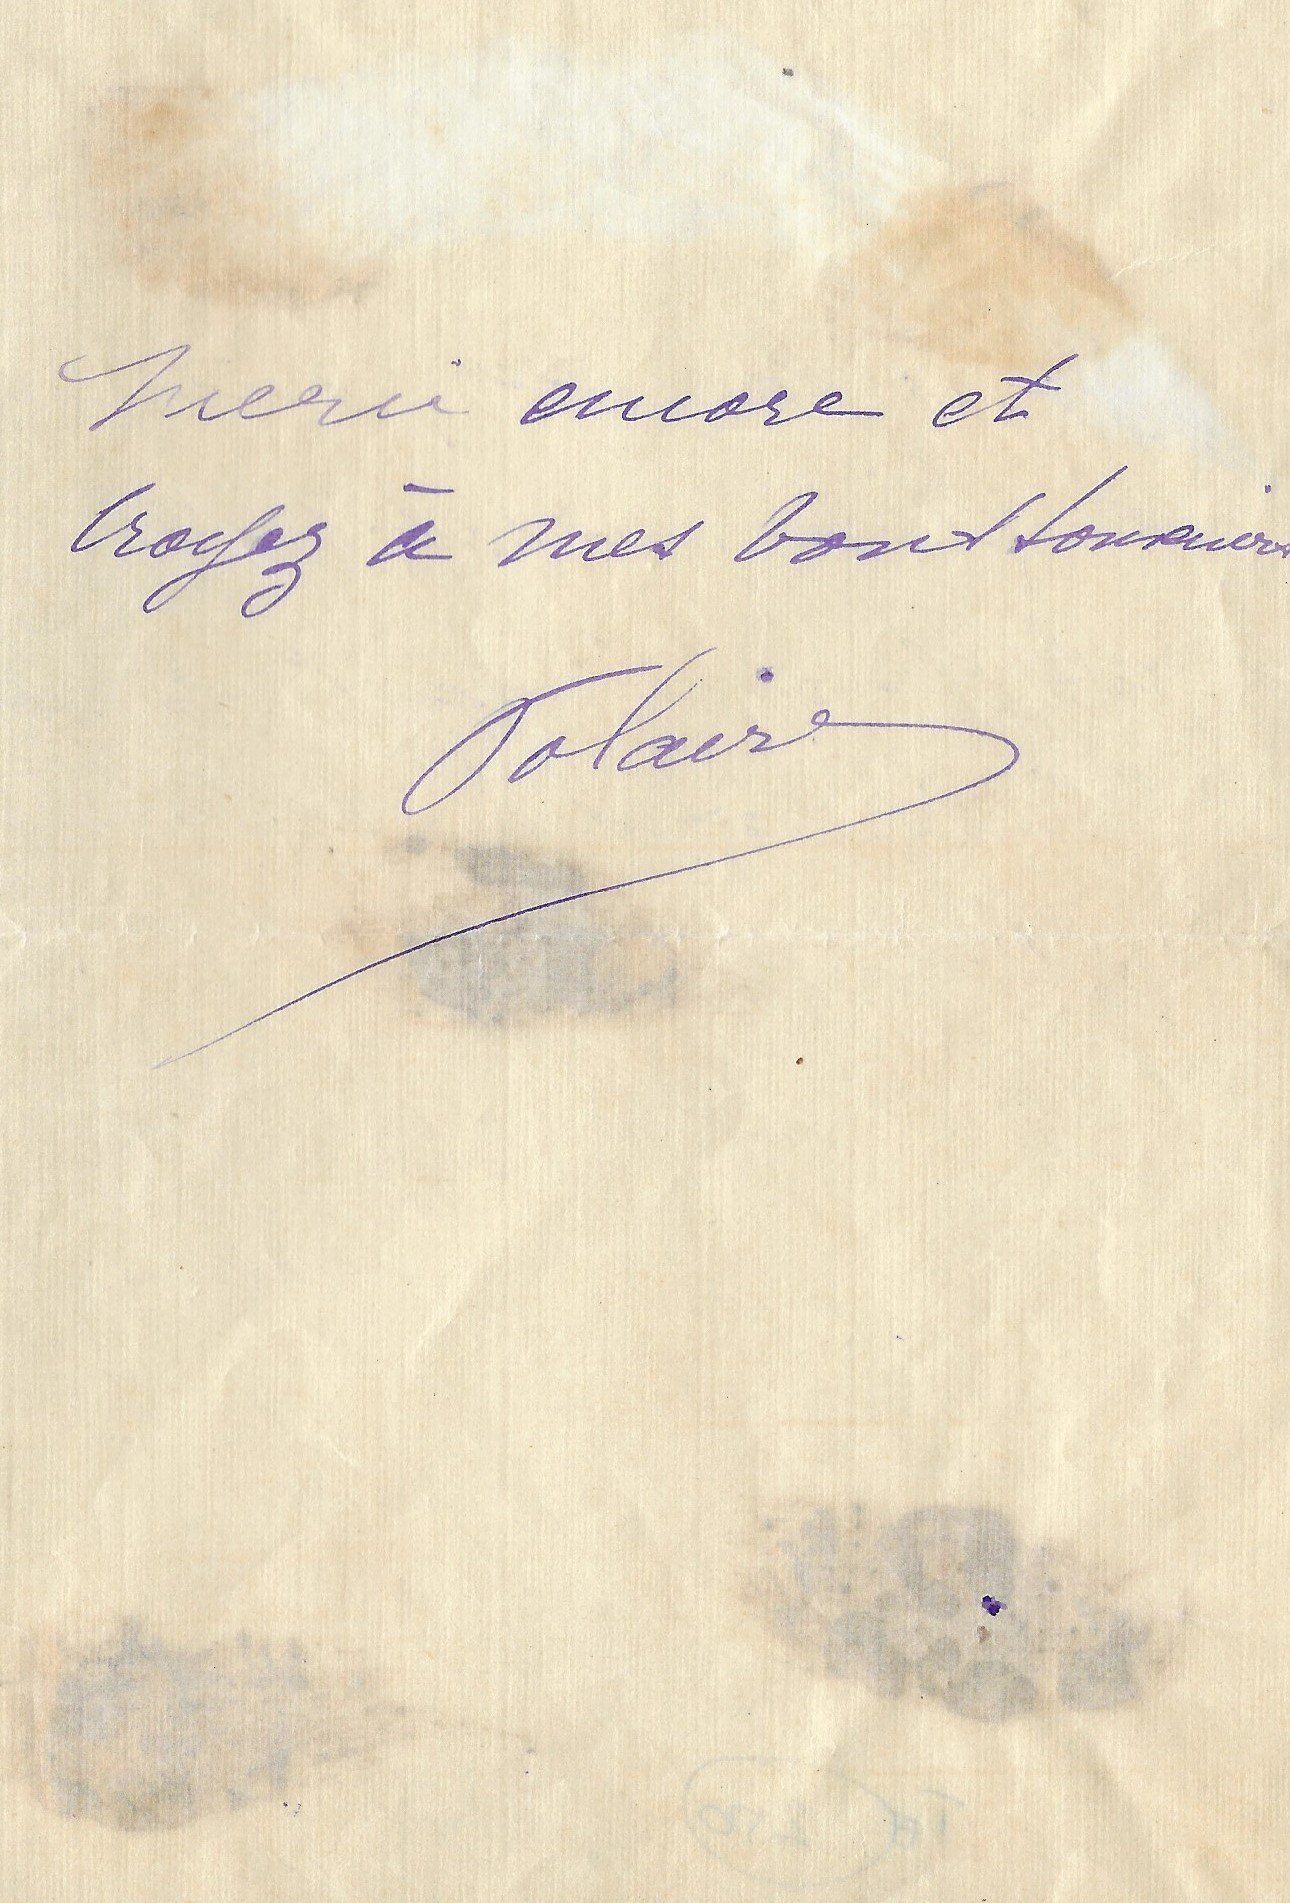 Merci encore et
croyez à mes bons souvenirs
Polaire